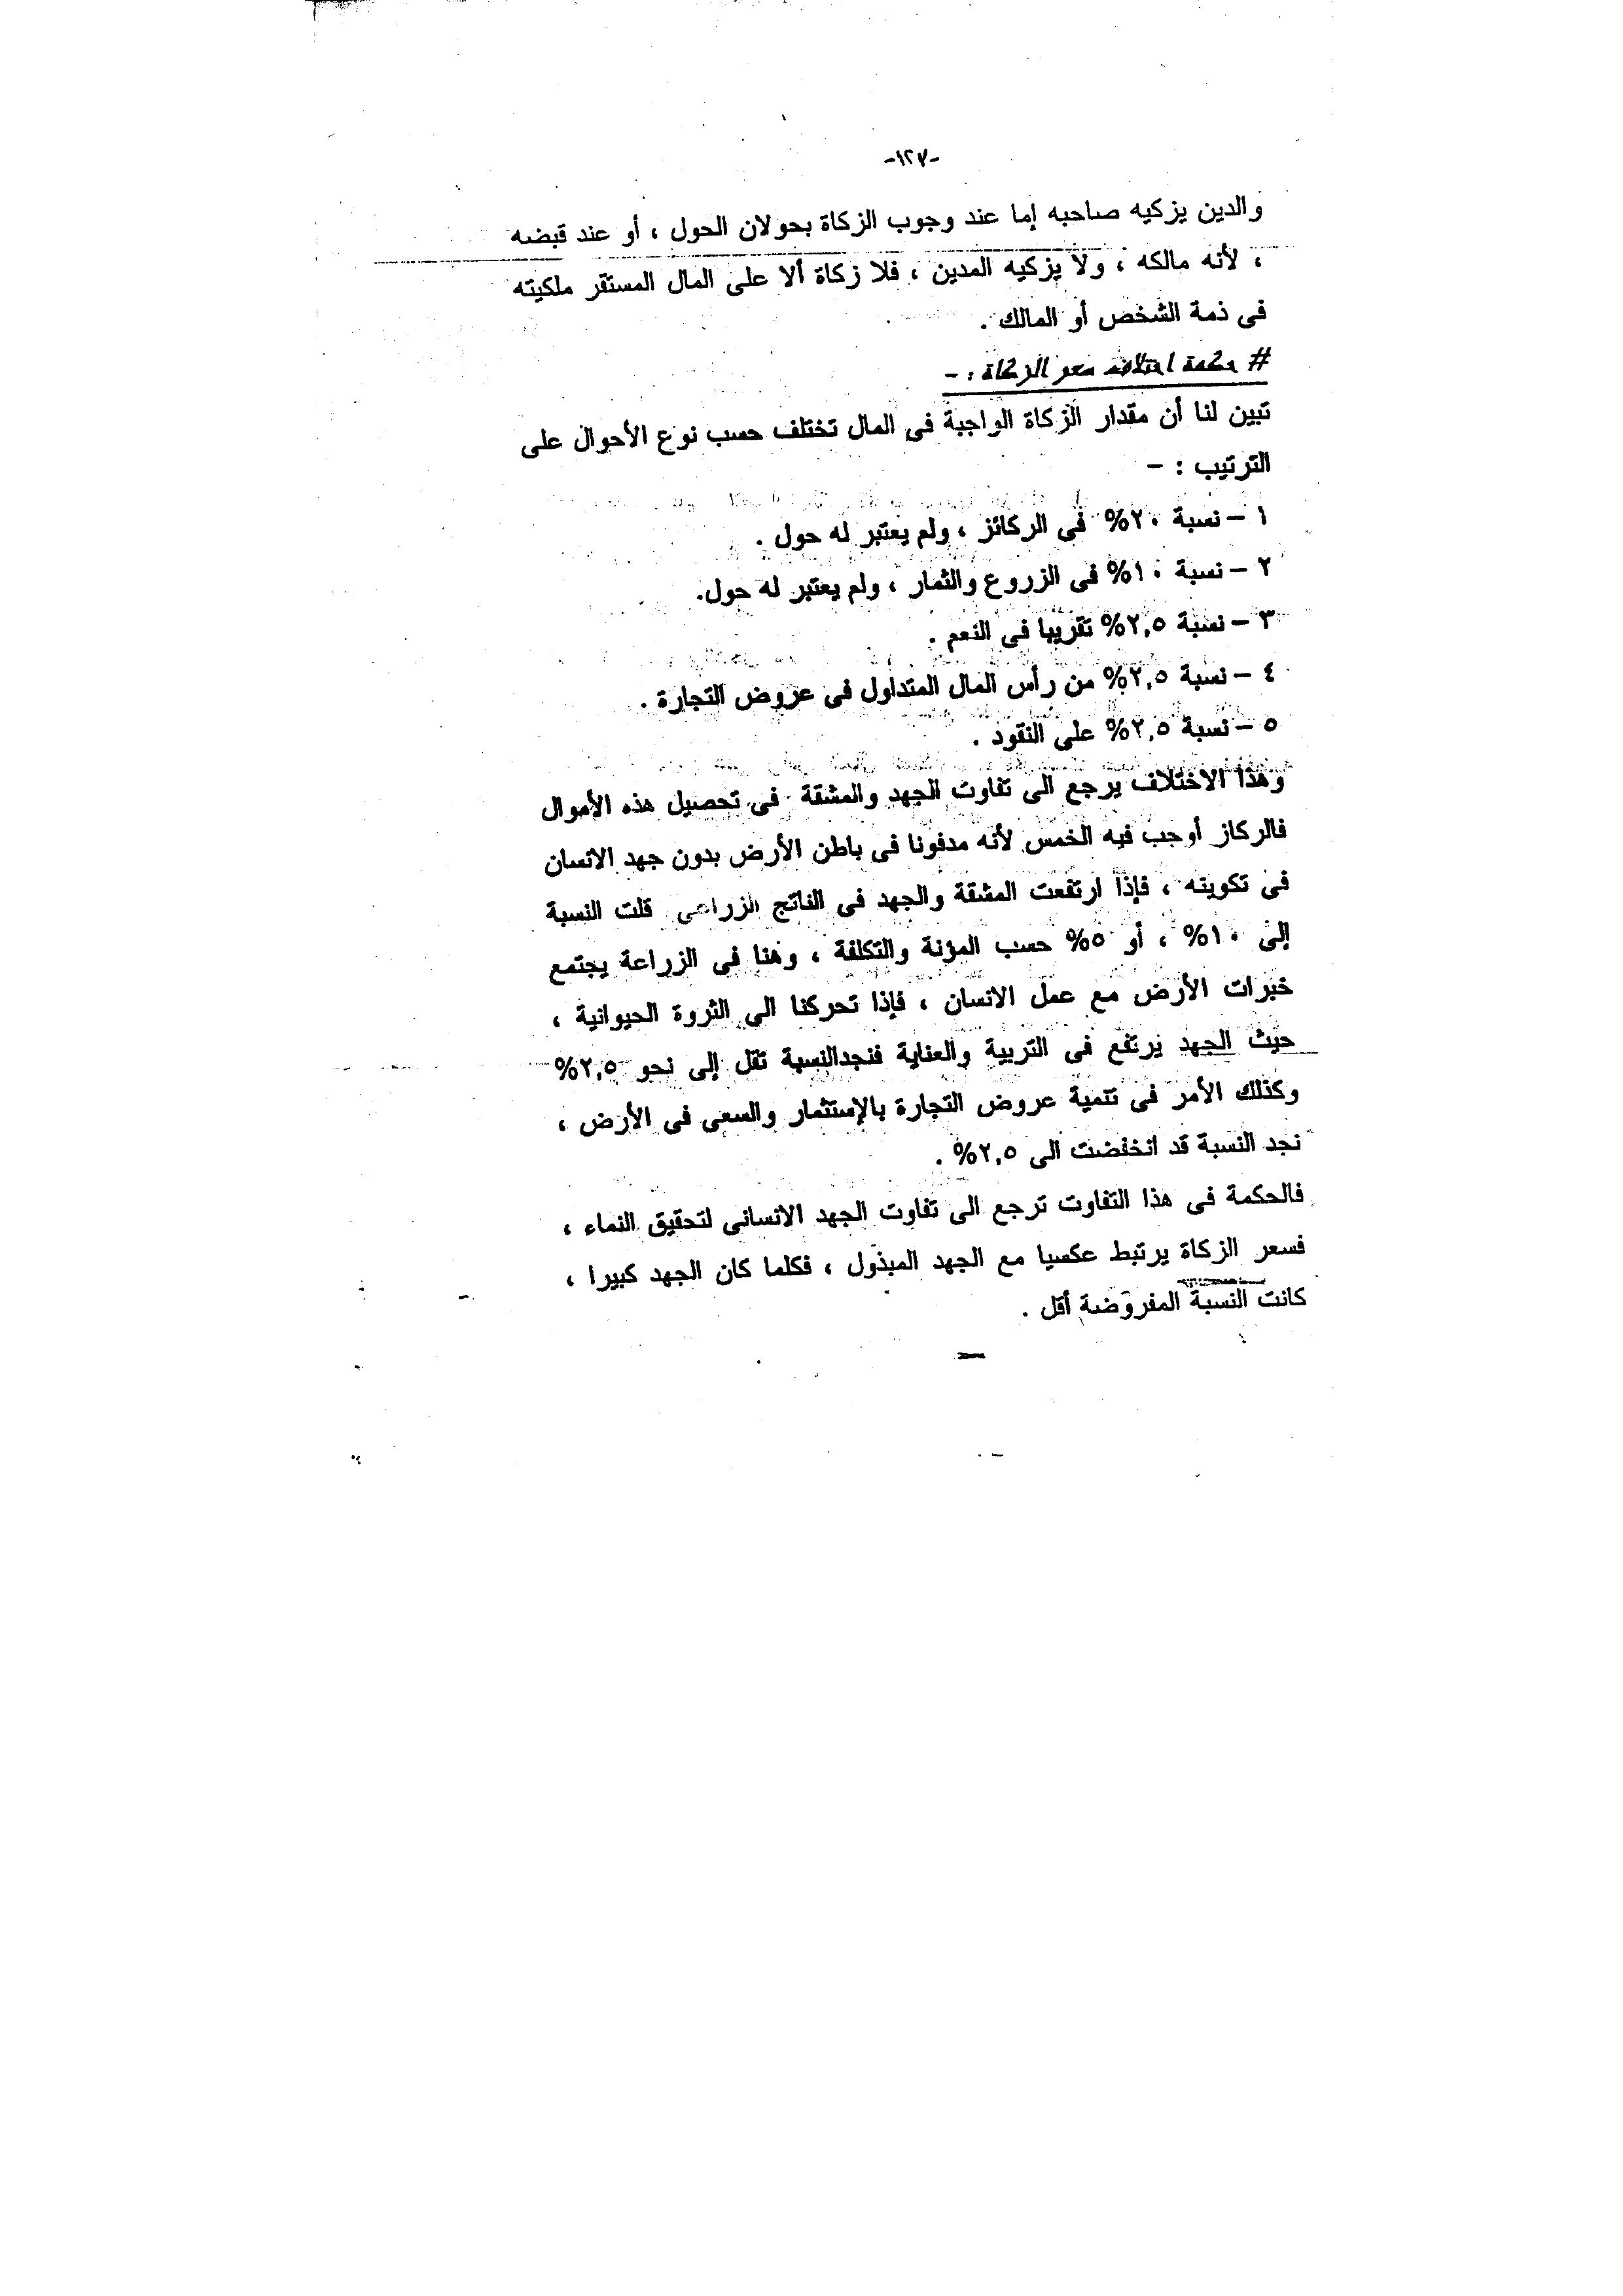 -١٢٧-
والدين يزكيه صاحبه إما عند وجوب الزكاة بحولان الحول ، أو عند قبضه
، لأنه مالكه ، ولا يزكيه المدين ، فلا زكاة ألا على المال المستقر ملكيته
فى ذمة الشخص أو المالك .
# حكمة اختلاف سعر الزكاة : -
تبين لنا أن مقدار الزكاة الواجبة فى المال تختلف حسب نوع الأحوال على
الترتيب : -
١ - نسبة ٢٠% فى الركائز ، ولم يعتبر له حول .
٢ - نسبة ١٠% فى الزروع والثمار ، ولم يعتبر له حول.
٣ - نسبة ٢,٥% تقريبا فى النعم .
٤ - نسبة ٢,٥% من رأس المال المتداول فى عروض التجارة .
٥ - نسبة ٢,٥% على النقود .
وهذا الاختلاف يرجع الى تفاوت الجهد والمشقة فى تحصيل هذه الأموال
فالركاز أوجب فيه الخمس لأنه مدفونا فى باطن الأرض بدون جهد الانسان
فى تكوينه ، فإذا ارتفعت المشقة والجهد فى الناتج الزراعى قلت النسبة
إلى ١٠% ، أو ٥% حسب المؤنة والتكلفة ، وهنا فى الزراعة يجتمع
خبرات الأرض مع عمل الانسان ، فإذا تحركنا الى الثروة الحيوانية ،
حيث الجهد يرتفع فى التربية والعناية فنجدالنسبة تقل إلى نحو ٢,٥%
وكذلك الأمر فى تنمية عروض التجارة بالإستثمار والسعى فى الأرض ،
نجد النسبة قد انخفضت الى ٢,٥% .
فالحكمة فى هذا التفاوت ترجع الى تفاوت الجهد الانسانى لتحقيق النماء ،
فسعر الزكاة يرتبط عكسيا مع الجهد المبذول ، فكلما كان الجهد كبيرا ،
كانت النسبة المفروضة أقل .